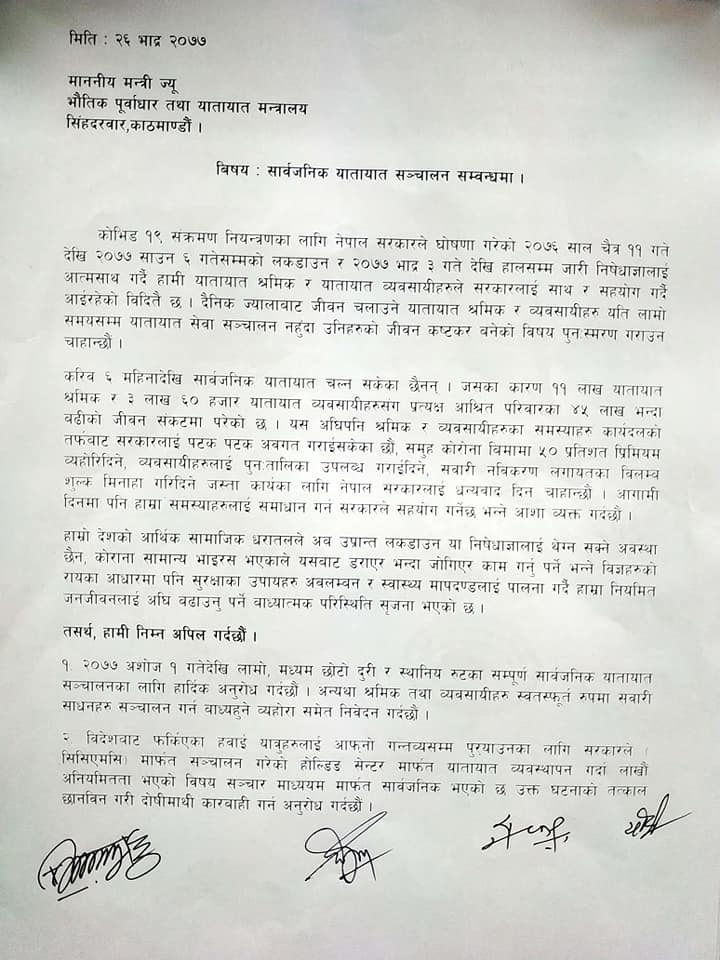 मिति : २६ भाद्र २०७७
माननीय मन्त्री ज्यू
भौतिक पूर्वाधार तथा यातायात मन्त्रालय
सिंहदरवार,काठमाण्डौं ।
बिषय : सार्वजनिक यातायात सञ्चालन सम्वन्धमा ।
कोभिड १९ संक्रमण नियन्त्रणका लागि नेपाल सरकारले घोषणा गरेको २०७६ साल चैत्र ११ गते
देखि २०७७ साउन ६ गतेसम्मको लकडाउन र २०७७ भाद्र ३ गते देखि हालसम्म जारी निषेधाज्ञालाई
आत्मसाथ गर्दै हामी यातायात श्रमिक र यातायात व्यवसायीहरुले सरकारलाई साथ र सहयोग गर्दै
आईरहेको विदितै छ । दैनिक ज्यालाबाट जीवन चलाउने यातायात श्रमिक र व्यवसायीहरु यति लामो
समयसम्म यातायात सेवा सञ्चालन नहुंदा उनिहरुको जीवन कष्टकर बनेको बिषय पुनःस्मरण गराउन
चाहान्छौ ।
करिव ६ महिनादेखि सार्वजनिक यातायात चल्न सकेका छैनन् । जसका कारण ११ लाख यातायात
श्रमिक र ३ लाख ६० हजार यातायात व्यवसायीहरुसंग प्रत्यक्ष आश्रित परिवारका ४५ लाख भन्दा
बढीको जीवन संकटमा परेको छ । यस अघिपनि श्रमिक र व्यवसायीहरुका समस्याहरु कार्यदलको
तर्फवाट सरकारलाई पटक पटक अवगत गराईसकेका छौ, समुह कोरोना बिमामा ५० प्रतिशत प्रिमियम
व्यहोरिदिने, व्यवसायीहरुलाई पुनःतालिका उपलब्ध गराईदिने, सवारी नविकरण लगायतका विलम्व
शुल्क मिनाहा गरिदिने जस्ता कार्यका लागि नेपाल सरकारलाई धन्यवाद दिन चाहान्छौ । आगामी
दिनमा पनि हाम्रा समस्याहरुलाई समाधान गर्न सरकारले सहयोग गर्नेछ भन्ने आशा व्यक्त गर्दछौ ।
हाम्रो देशको आर्थिक सामाजिक धरातलले अब उप्रान्त लकडाउन या निषेधाज्ञालाई थेग्न सक्ने अवस्था
छैन, कोराना सामान्य भाइरस भएकाले यसबाट डराएर भन्दा जोगिएर काम गर्नु पर्ने भन्ने विज्ञहरुको
रायका आधारमा पनि सुरक्षाका उपायहरु अवलम्वन र स्वास्थ्य मापदण्डलाई पालना गर्दै हाम्रा नियमित
जनजीवनलाई अघि वढाउनु पर्ने वाध्यात्मक परिस्थिति सृजना भएको छ ।
तसर्थ, हामी निम्न अपिल गर्दछौं ।
१. २०७७ अशोज १ गतेदेखि लामो, मध्यम छोटो दुरी र स्थानिय रुटका सम्पूर्ण सार्वजनिक यातायात
सञ्चालनका लागि हार्दिक अनुरोध गर्दछौ । अन्यथा श्रमिक तथा व्यवसायीहरु स्वतस्फूर्त रुपमा सवारी
साधनहरु सञ्चालन गर्न वाध्यहुने व्यहोरा समेत निवेदन गर्दछौ ।
२. विदेशवाट फर्किएका हवाई यात्रुहरुलाई आफ्नो गन्तव्यसम्म पुर्‍याउनका लागि सरकारले (
सिसिएमसि) मार्फत सञ्चालन गरेको होल्डिङ सेन्टर मार्फत यातायात व्यवस्थापन गर्दा लाखौ
अनियमितता भएको विषय सञ्चार माध्ययम मार्फत सार्वजनिक भएको छ उक्त घटनाको तत्काल
छानविन गरी दोषीमाथी कारवाही गर्न अनुरोध गर्दछौं ।